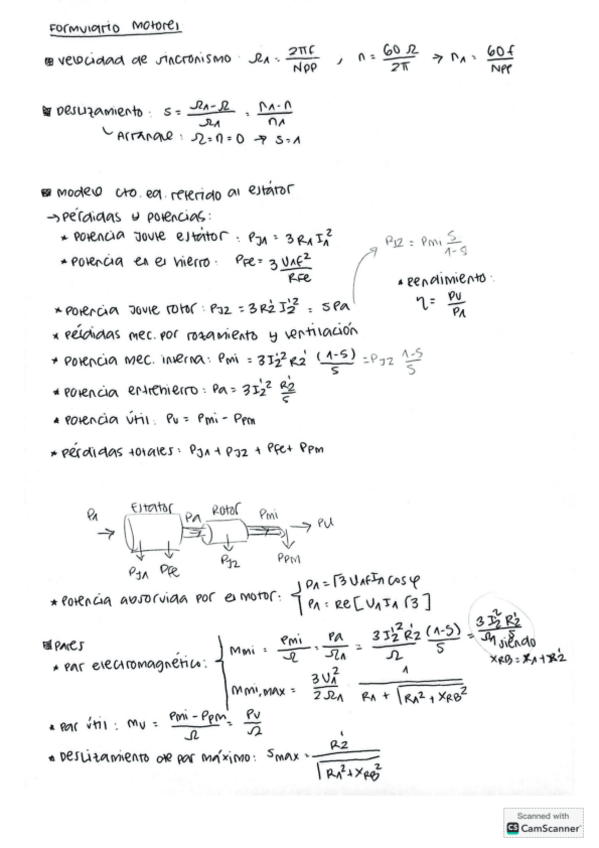 Formulario motores
velocidad de sincronismo: Ω1 = 2πf/Npp , n = 60Ω/2π → n1 = 60f/Npp
Deslizamiento: s = (Ω1-Ω)/Ω1 = (n1-n)/n1
Arranque: Ω=n=0 → s=1
modelo cto. eq. referido al estátor
→ pérdidas y potencias:
* potencia joule estátor: PJ1 = 3R1I1²
PJ2 = Pmi s/(1-s)
* potencia en el hierro: PFe = 3 U1f²/RFe
* rendimiento:
η = Pu/P1
* potencia joule rotor: PJ2 = 3R2'I2'² = sPa
* pérdidas mec. por rozamiento y ventilación
* potencia mec. interna: Pmi = 3I2'²R2' (1-s)/s = PJ2 (1-s)/s
* potencia entrehierro: Pa = 3I2'² R2'/s
* potencia útil: Pu = Pmi - Ppm
* pérdidas totales: PJ1 + PJ2 + PFe + Ppm
P1 Estator Pa Rotor Pmi → Pu
PJ1 PFe PJ2 Ppm
* potencia absorvida por el motor: P1 = √3 U1f I1 cosφ
P1 = Re[U1 I1 √3]
Pares
* par electromagnético: Mmi = Pmi/Ω = Pa/Ω1 = 3I2'²R2'/Ω (1-s)/s = 3I2'²R2'/s / Ω1
siendo
XRB = X1 + X2'
Mmi,max = 3U1²/2Ω1 · 1/(R1 + √(R1² + XRB²))
* par útil: Mu = (Pmi - Ppm)/Ω = Pu/Ω
* Deslizamiento de par máximo: smax = R2'/√(R1² + XRB²)
Scanned with
CS CamScanner